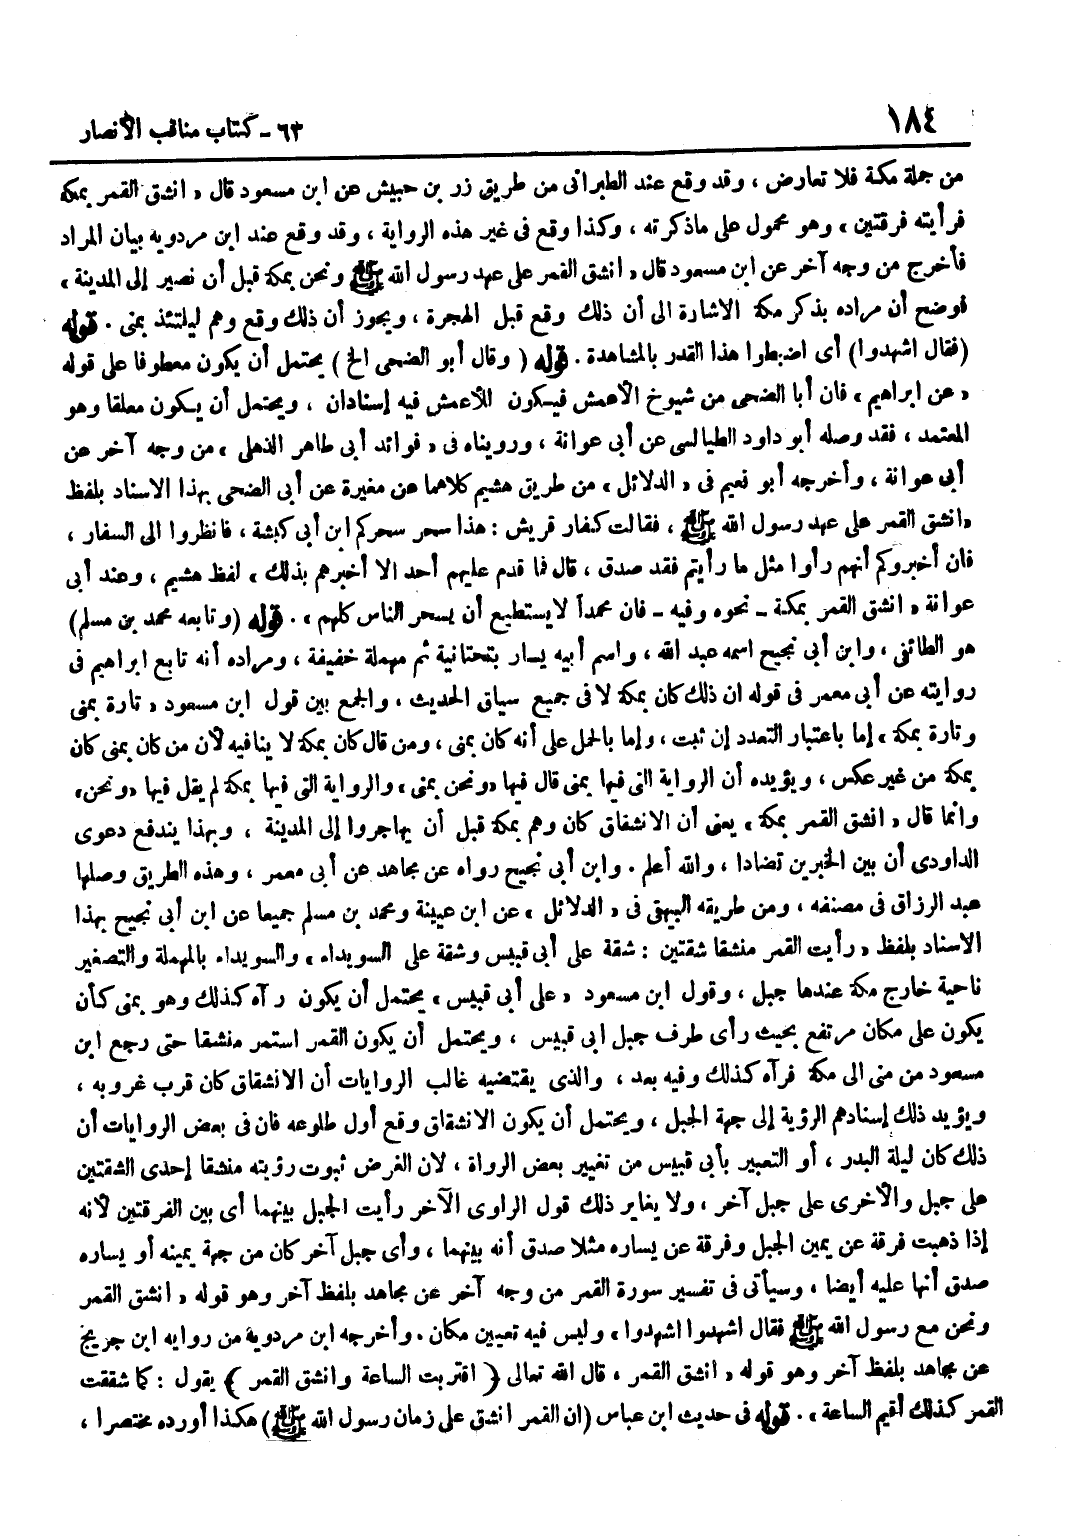 ١٨٤
٦٣ - كتاب مناقب الأنصار
من جملة مكة فلا تعارض ، وقد وقع عند الطبرانى من طريق زر بن حبيش عن ابن مسعود قال « انشق القمر بمكة
فرأيته فرقتين » وهو محمول على ماذكرته ، وكذا وقع فى غير هذه الرواية ، وقد وقع عند ابن مردويه بيان المراد
فأخرج من وجه آخر عن ابن مسعود قال « انشق القمر على عهد رسول الله ﷺ ونحن بمكة قبل أن نصير إلى المدينة »
فوضح أن مراده بذكر مكة الاشارة الى أن ذلك وقع قبل الهجرة ، ويجوز أن ذلك وقع وهم ليلتئذ بمنى . قوله
(فقال اشهدوا) أى اضبطوا هذا القدر بالمشاهدة . قوله ( وقال أبو الضحى الخ ) يحتمل أن يكون معطوفا على قوله
« عن ابراهيم » فان أبا الضحى من شيوخ الأعمش فيكون للأعمش فيه إسنادان ، ويحتمل أن يكون معلقا وهو
المعتمد ، فقد وصله أبو داود الطيالسى عن أبى عوانة ، ورويناه فى « فوائد أبى طاهر الذهلى » من وجه آخر عن
أبى عوانة ، وأخرجه أبو نعيم فى « الدلائل » من طريق هشيم كلاهما عن مغيرة عن أبى الضحى بهذا الاسناد بلفظ
« انشق القمر على عهد رسول الله ﷺ ، فقالت كفار قريش : هذا سحر سحركم ابن أبى كبشة ، فانظروا الى السفار ،
فان أخبروكم أنهم رأوا مثل ما رأيتم فقد صدق ، قال فما قدم عليهم أحد الا أخبرهم بذلك » لفظ هشيم ، وعند أبى
عوانة « انشق القمر بمكة ـ نحوه وفيه ـ فان محمداً لايستطيع أن يسحر الناس كلهم » . قوله (وتابعه محمد بن مسلم)
هو الطائفى ، وابن أبى نجيح اسمه عبد الله ، واسم أبيه يسار بتحتانية ثم مهملة خفيفة ، ومراده أنه تابع ابراهيم فى
روايته عن أبى معمر فى قوله ان ذلك كان بمكة لا فى جميع سياق الحديث ، والجمع بين قول ابن مسعود « تارة بمنى
وتارة بمكة » إما باعتبار التعدد إن ثبت ، وإما بالحمل على أنه كان بمنى ، ومن قال كان بمكة لا ينافيه لأن من كان بمنى كان
بمكة من غير عكس ، ويؤيده أن الرواية التى فيها بمنى قال فيها «ونحن بمنى» والرواية التى فيها بمكة لم يقل فيها «ونحن»
وانما قال « انشق القمر بمكة » يعنى أن الانشقاق كان وهم بمكة قبل أن يهاجروا إلى المدينة ، وبهذا يندفع دعوى
الداودى أن بين الخبرين تضادا ، والله أعلم . وابن أبى نجيح رواه عن مجاهد عن أبى معمر ، وهذه الطريق وصلها
عبد الرزاق فى مصنفه ، ومن طريقه البيهقى فى « الدلائل » عن ابن عيينة ومحمد بن مسلم جميعا عن ابن أبى نجيح بهذا
الاسناد بلفظ « رأيت القمر منشقا شقتين : شقة على أبى قبيس وشقة على السويداء » والسويداء بالمهملة والتصغير
ناحية خارج مكة عندها جبل ، وقول ابن مسعود « على أبى قبيس » يحتمل أن يكون رآه كذلك وهو بمنى كأن
يكون على مكان مرتفع بحيث رأى طرف جبل ابى قبيس ، ويحتمل أن يكون القمر استمر منشقا حتى رجع ابن
مسعود من منى الى مكة فرآه كذلك وفيه بعد ، والذى يقتضيه غالب الروايات أن الانشقاق كان قرب غروبه ،
ويؤيد ذلك إسنادهم الرؤية إلى جهة الجبل ، ويحتمل أن يكون الانشقاق وقع أول طلوعه فان فى بعض الروايات أن
ذلك كان ليلة البدر ، أو التعبير بأبى قبيس من تغيير بعض الرواة ، لان الغرض ثبوت رؤيته منشقا إحدى الشقتين
على جبل والأخرى على جبل آخر ، ولا يغاير ذلك قول الراوى الآخر رأيت الجبل بينهما أى بين الفرقتين لأنه
إذا ذهبت فرقة عن يمين الجبل وفرقة عن يساره مثلا صدق أنه بينهما ، وأى جبل آخر كان من جهة يمينه أو يساره
صدق أنها عليه أيضا ، وسيأتى فى تفسير سورة القمر من وجه آخر عن مجاهد بلفظ آخر وهو قوله « انشق القمر
ونحن مع رسول الله ﷺ فقال اشهدوا اشهدوا » وليس فيه تعيين مكان . وأخرجه ابن مردويه من روايه ابن جريج
عن مجاهد بلفظ آخر وهو قوله « انشق القمر ، قال الله تعالى ﴿ اقتربت الساعة وانشق القمر ﴾ يقول : كما شققت
القمر كذلك أقيم الساعة » . قوله فى حديث ابن عباس (ان القمر انشق على زمان رسول الله ﷺ) هكذا أورده مختصرا ،